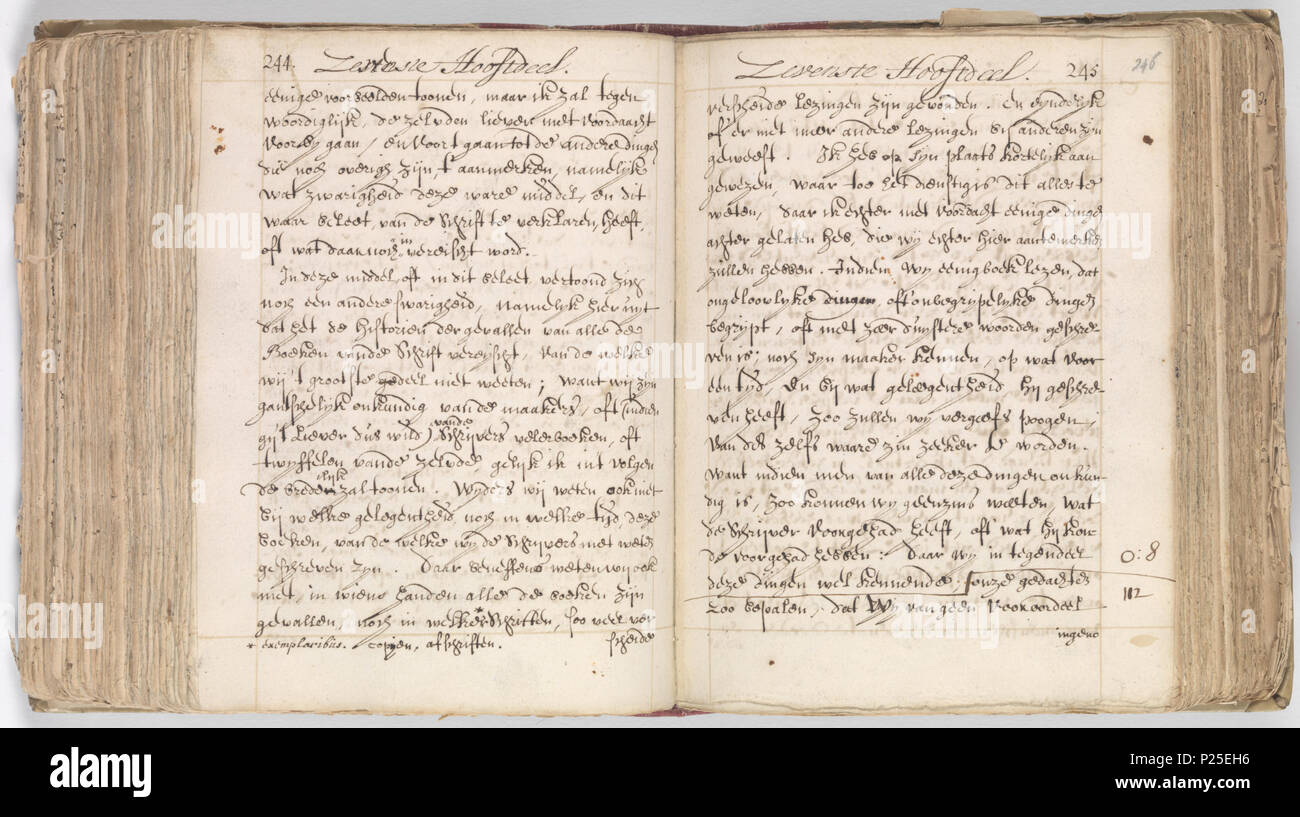 244. Zevenste Hooftdeel.
eenige voorbeelden toonen, maar ik zal tegen
woordiglijk, de zelvden liever met voordacht
voorby gaan, en voort gaan tot de andere dingen
die noch overigh zijn, t' aanmerken, namelijk
wat zwarigheid deze ware middel, en dit
waar beleet, van de Schrift te verklaren, heeft,
oft wat daar noch in vereischt word.
In deze middel, oft in dit beleet vertoond zich
noch een andere swarigheid, namelijk hier uyt
dat het de Historien der gevallen van alle de
Boeken vande Schrift vereyscht, van de welke
wij 't grootste gedeel niet weeten; want wij zijn
gantschelijk onkundig van de maakers, oft (indien
gij 't liever dus wild) vande Schrijvers veler boeken, oft
twyffelen vande zelvde gelijk ik int volgen
de bredelijk zal toonen. Wyders wij weten ook niet
bij welke gelegentheid, noch in welke tijd, deze
boeken, van de welke wy de Schrijvers niet weten
geschreven zyn. Daar beneffens weten wij ook
niet, in wiens handen alle de boeken zijn
gevallen, noch in welker* Schriften, soo veel ver
* exemplaribus. copyen, afschriften.
scheide
Zevenste Hoofdeel. 245
246
verscheide lezingen zijn gevonden. En eyndelyk
of er niet meer andere lezingen bij anderen zyn
geweest. Ik heb op zyn plaats kortelijk aan
gewezen, waar toe het dienstig is dit alles te
weten, daar ik echter met voordacht eenige dingen
achter gelaten heb, die wij echter hier aan te merken
zullen hebben. Indien wy eenig boek lezen, dat
ongeloovlyke dingen, oft onbegrypelyke dingen
begrypt, oft met zeer duystere woorden geschre
ven is; noch zyn maaker kennen, op wat voor
een tyd, en bij wat geleegentheid hij geschre
ven heeft, zoo zullen wy vergeefs poogen,
van des zelfs waare zin zeeker te worden.
Want indien men van alle deze dingen onkun
dig is, zoo konnen wy geenzins weeten, wat
de Schrijver voorgehad heeft, oft wat hij kon
de voorgehad hebben: Daar wy in tegendeel
deze dingen wel kennende, onze gedachten
zoo bepalen, dat wy van geen vooroordeel
ingeno
O: 8
112
alamy
P25EH6